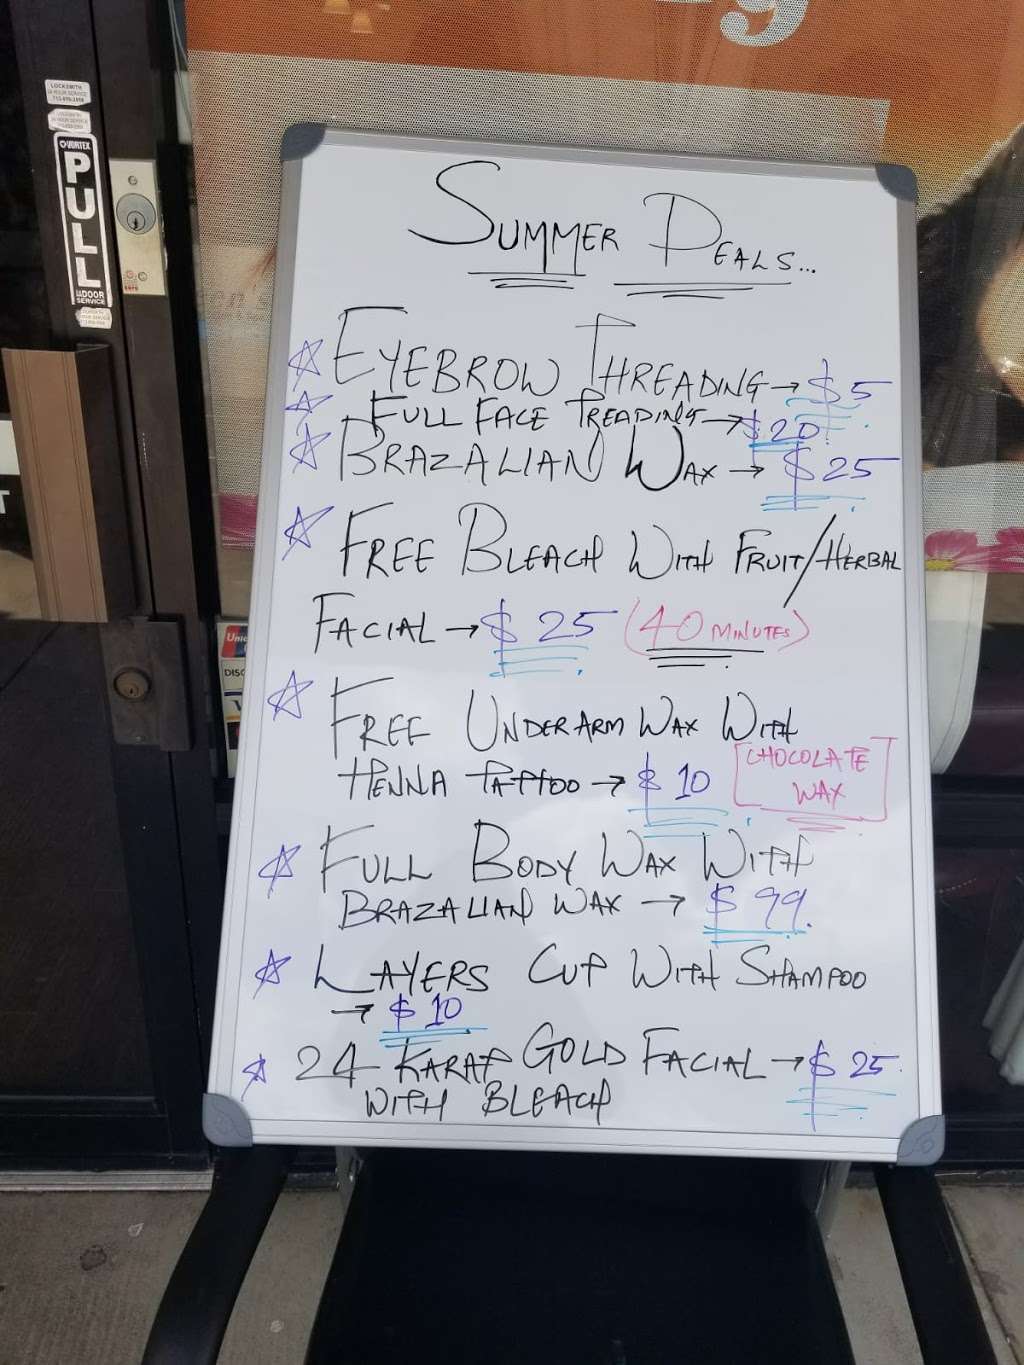 g
LOCKSMITH
24 HOUR SERVICE
VORTEX
PULL
DOOR
SERVICE
SUMMER DEALS...
☆ EYEBROW THREADING → $5
☆ FULL FACE TREADING → $20
☆ BRAZALIAN WAX → $25
☆ FREE BLEACH WITH FRUIT/HERBAL
FACIAL → $25 (40 MINUTES)
☆ FREE UNDERARM WAX WITH
HENNA TATTOO → $10 [CHOCOLATE
WAX]
☆ FULL BODY WAX WITH
BRAZALIAN WAX → $99.
☆ LAYERS CUT WITH SHAMPOO
→ $10
☆ 24 KARAT GOLD FACIAL → $25.
WITH BLEACH
T
DISC